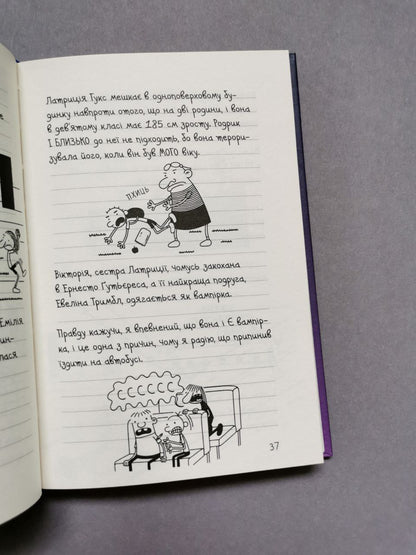 Латриція Гукс мешкає в одноповерховому бу-
динку навпроти отого, що на дві родини, і вона
в дев'ятому класі має 185 см зросту. Родрик
І БЛИЗЬКО до неї не підходить, бо вона терори-
зувала його, коли він був МОГО віку.
ПХИЦЬ
Вікторія, сестра Латриції, чомусь закохана
в Ернесто Гутьєреса, а її найкраща подруга,
Евеліна Тримбл, одягається як вампірка.
Правду кажучи, я впевнений, що вона і Є вампір-
ка, і це одна з причин, чому я радію, що припинив
їздити на автобусі.
СССССС
37
Емілія
ин-
лася